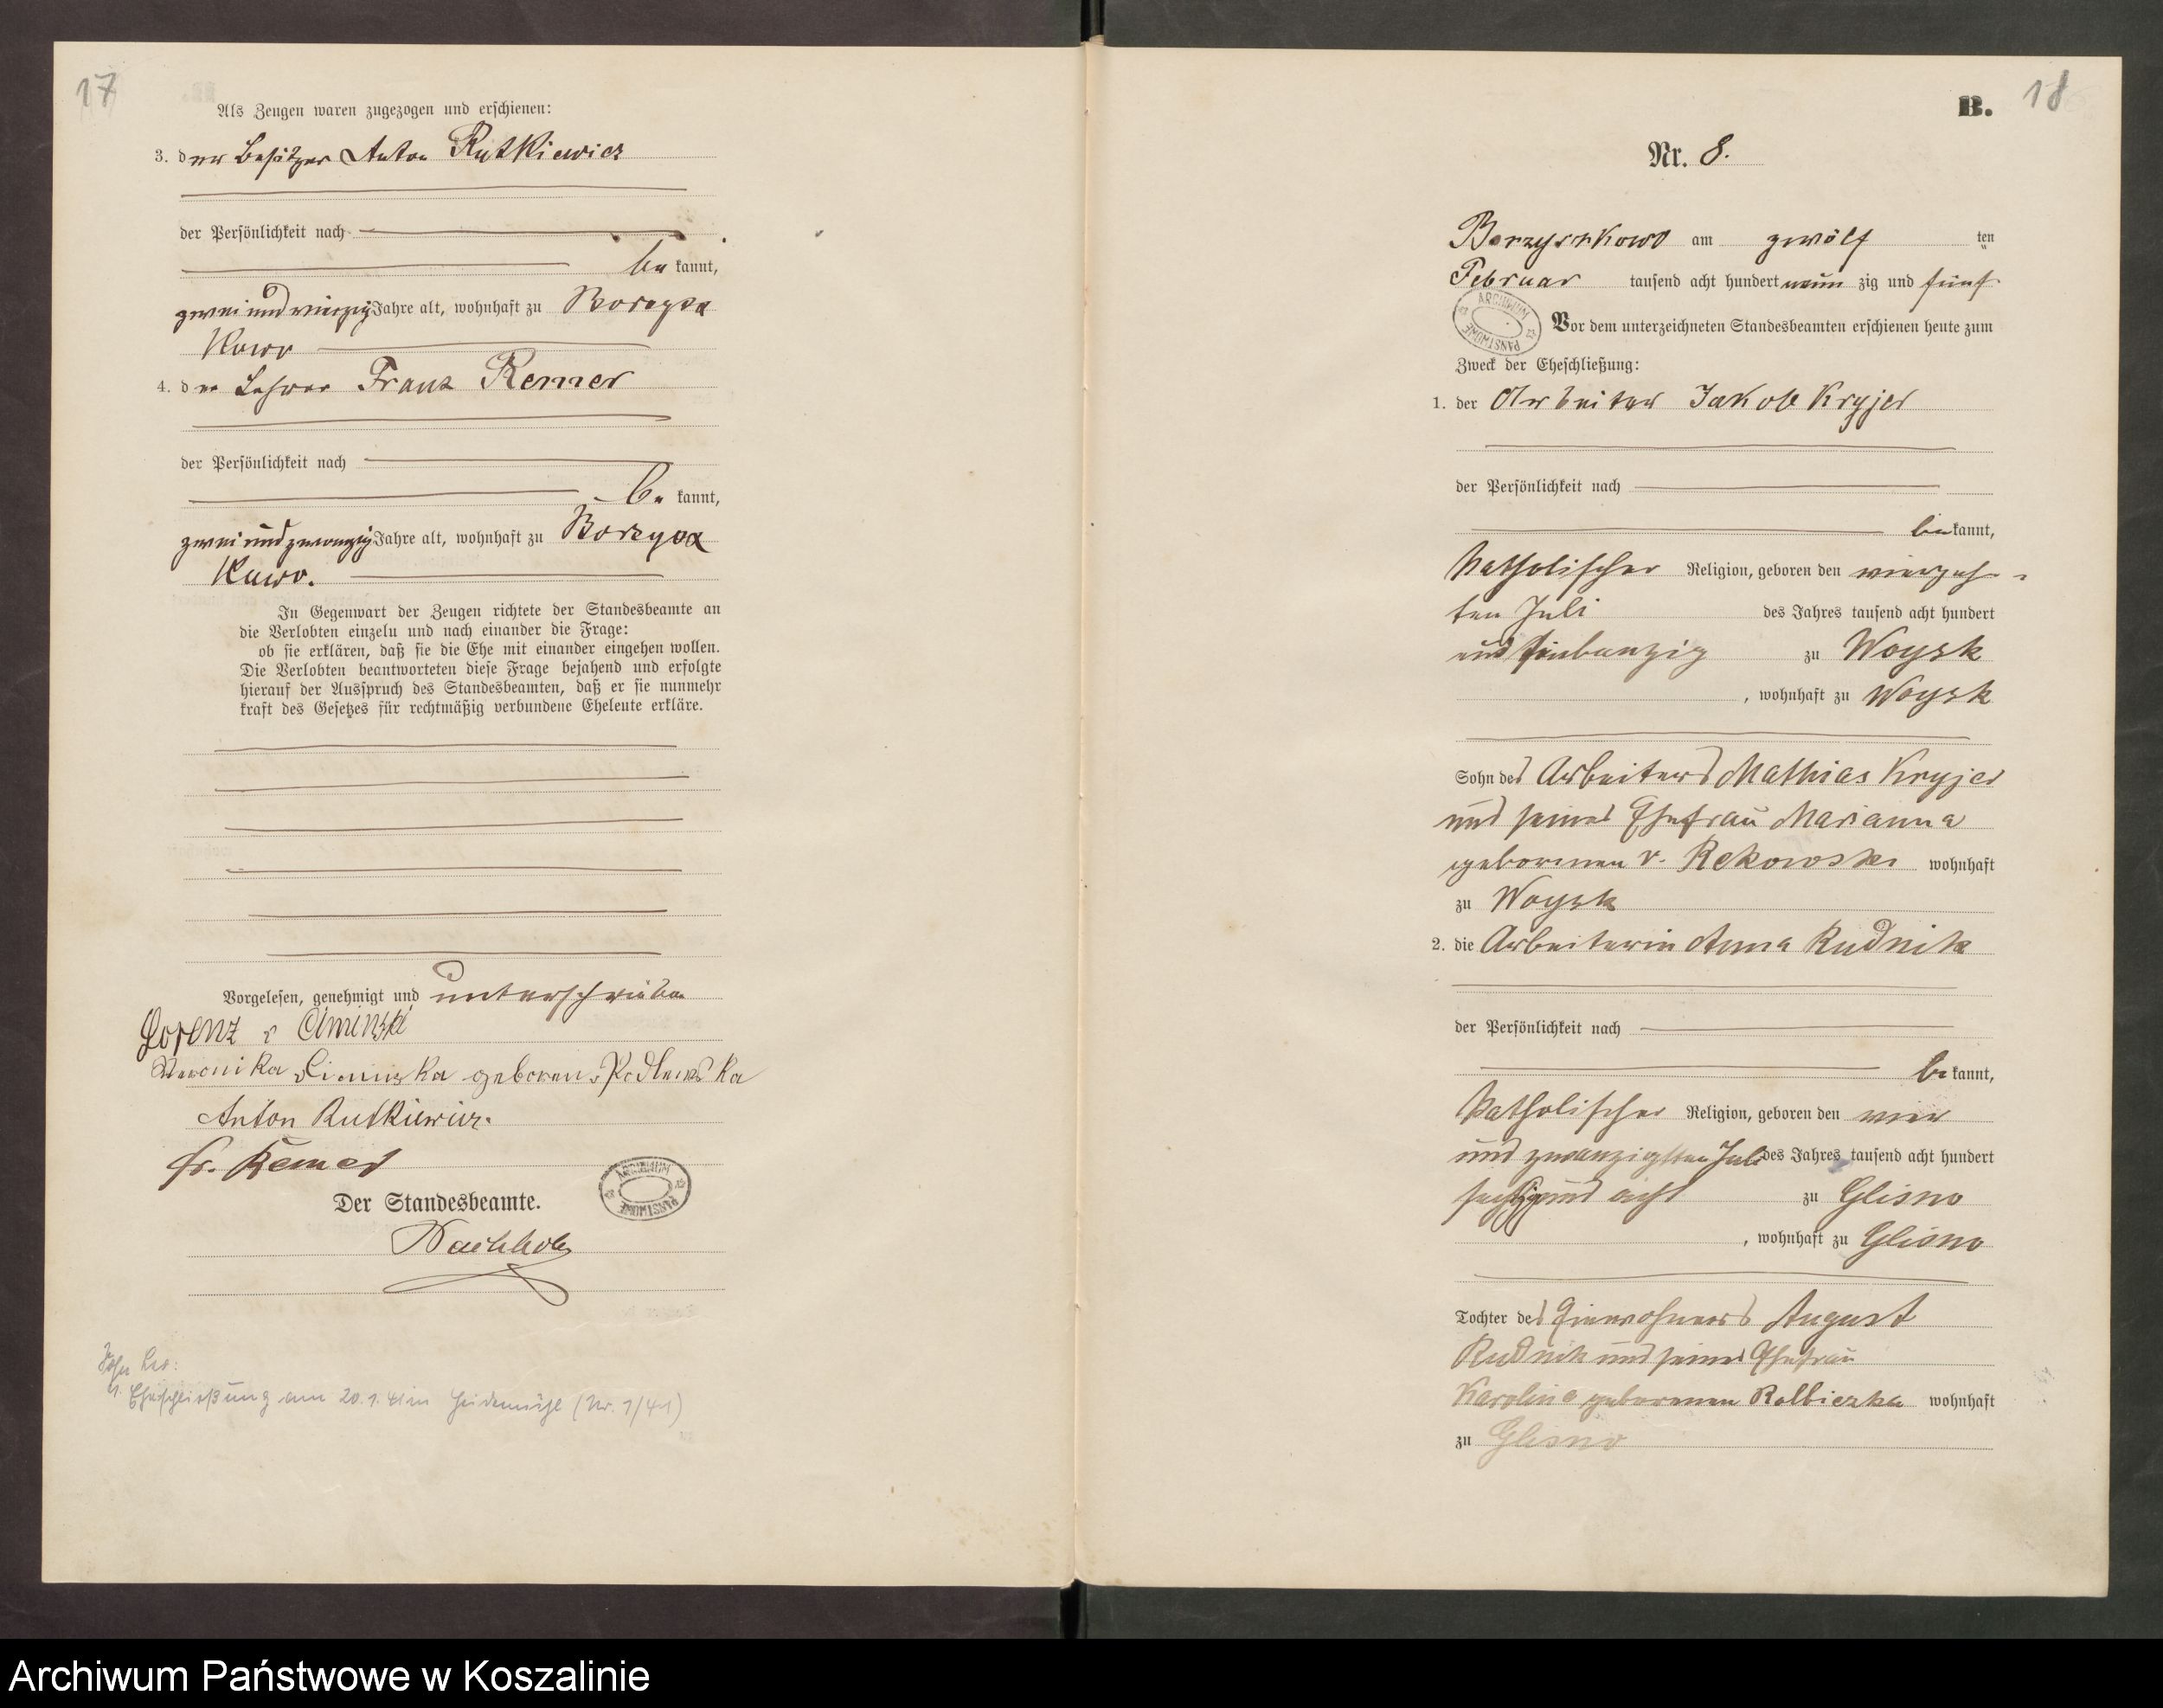 17
Als Zeugen waren zugezogen und erschienen:
3. der Besitzer Anton Rutkiewicz
der Persönlichkeit nach
be kannt,
zwei und vierzig Jahre alt, wohnhaft zu Borzysz
kowo
4. der Lehrer Franz Remer
der Persönlichkeit nach
be kannt,
zwei und zwanzig Jahre alt, wohnhaft zu Borzysz
kowo.
In Gegenwart der Zeugen richtete der Standesbeamte an
die Verlobten einzeln und nach einander die Frage:
ob sie erklären, daß sie die Ehe mit einander eingehen wollen.
Die Verlobten beantworteten diese Frage bejahend und erfolgte
hierauf der Ausspruch des Standesbeamten, daß er sie nunmehr
kraft des Gesetzes für rechtmäßig verbundene Eheleute erkläre.
Vorgelesen, genehmigt und unterschrieben
Lorenz v Ciminski
Weronika geboren
Anton Rutkiewicz.
Fr. Remer
ARCHIWUM PAŃSTWOWE
Der Standesbeamte.
1. Eheschließung am 20.1.41 in Heidemühl (Nr. 1/41)
18
B.
Nr. 8.
Borzyszkowo am zwölf ten
Februar tausend acht hundert neun zig und fünf
ARCHIWUM PAŃSTWOWE
Vor dem unterzeichneten Standesbeamten erschienen heute zum
Zweck der Eheschließung:
1. der Arbeiter Jakob Kryjer
der Persönlichkeit nach
be kannt,
katholischer Religion, geboren den vierzehn-
ten Juli des Jahres tausend acht hundert
und siebenzig zu Woysk
, wohnhaft zu Woysk
Sohn des Arbeiters Mathias Kryjer
und seiner Ehefrau Marianna
geborenen v. Rekowski wohnhaft
zu Woysk
2. die Arbeiterin Anna Rudnik
der Persönlichkeit nach
be kannt,
katholischer Religion, geboren den vier
und zwanzigsten Juli des Jahres tausend acht hundert
sechzig und acht zu Glisno
, wohnhaft zu Glisno
Tochter des Einwohners August
Rudnik und seiner Ehefrau
Karolina geborenen Kolbiezka wohnhaft
zu Glisno
Archiwum Państwowe w Koszalinie